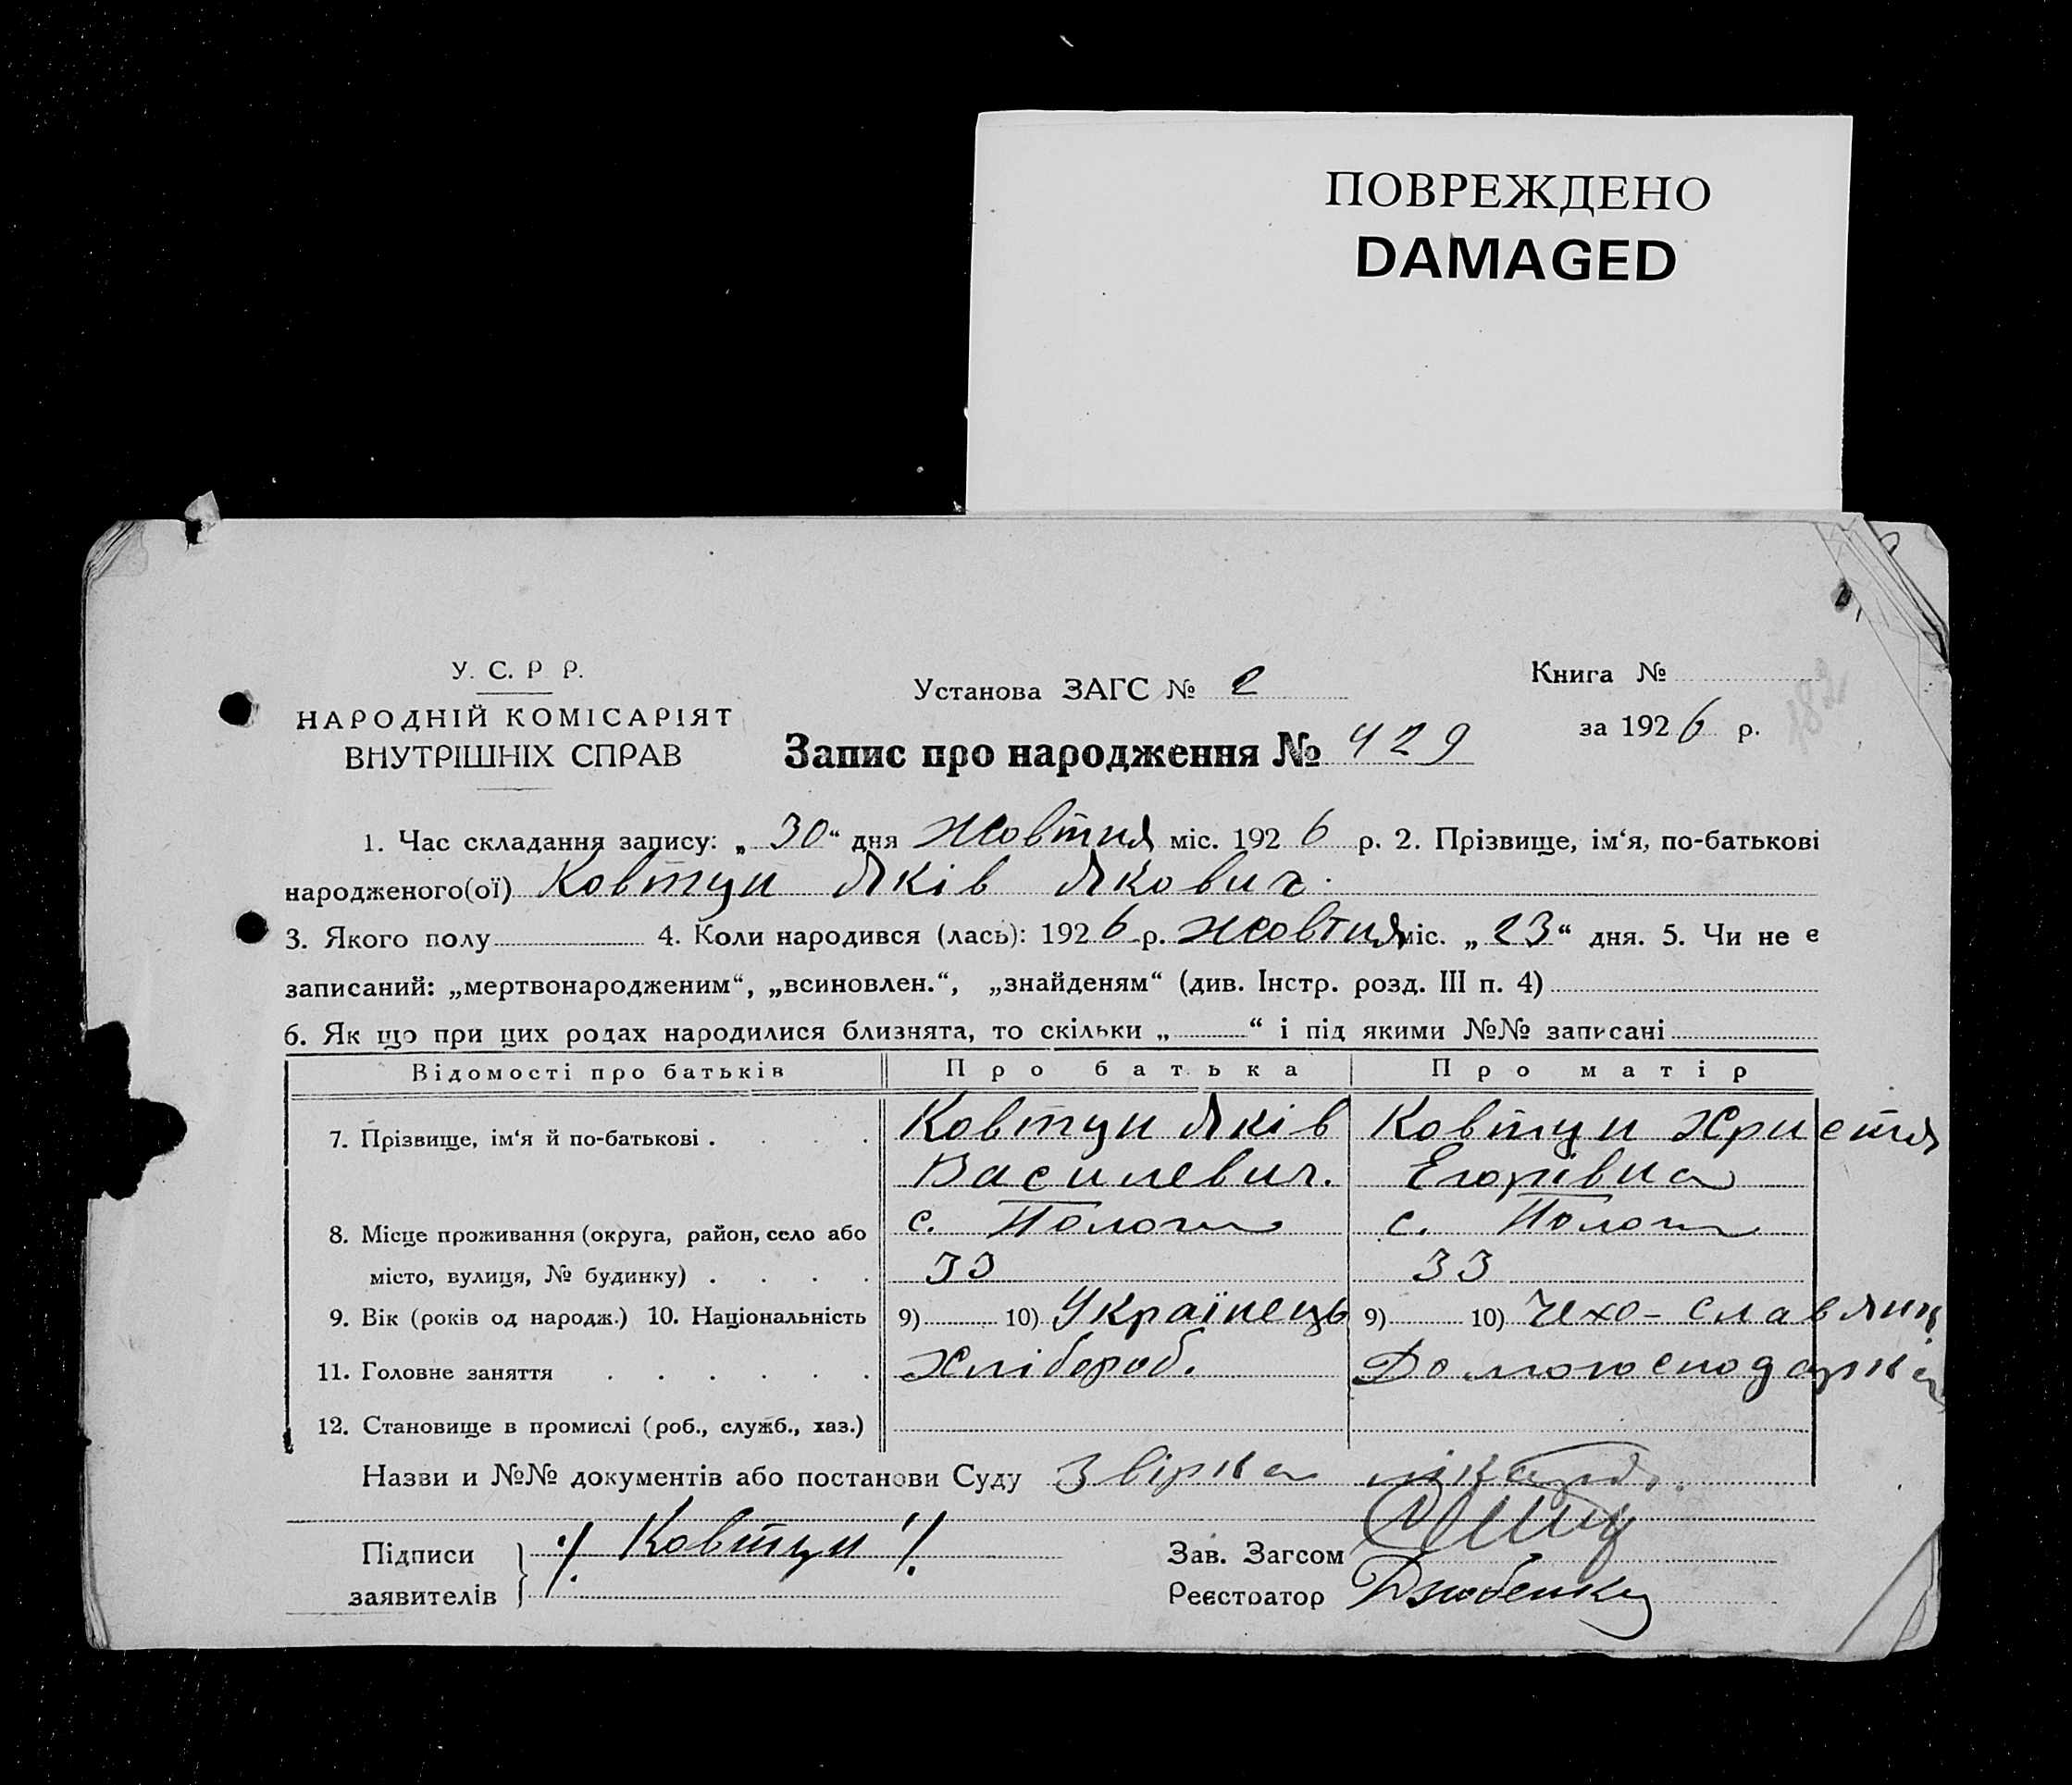 ПОВРЕЖДЕНО
DAMAGED
У. С. Р Р.
НАРОДНІЙ КОМІСАРІЯТ
ВНУТРІШНІХ СПРАВ
Установа ЗАГС № 2
Запис про народження № 429
Книга №
за 1926 р.
182
1. Час складання запису: „30“ дня Жовтня міс. 1926 р. 2. Прізвище, ім‘я, по-батькові
народженого(ої) Ковтун Яків Якович.
3. Якого полу 4. Коли народився (лась): 1926 р. жовтня міс. „23“ дня. 5. Чи не є
записаний: „мертвонародженим“, „всиновлен.“, „знайденям“ (див. Інстр. розд. III п. 4)
6. Як що при цих родах народилися близнята, то скільки „ “ і під якими №№ записані
Відомості про батьків Про батька Про матір
7. Прізвище, ім‘я й по-батькові . . . . Ковтун Яків Ковтун Христя
Василевич. Егорівна
8. Місце проживання (округа, район, село або с. Пологи с. Пологи
місто, вулиця, № будинку) . . . . 33 33
9. Вік (років од народж.) 10. Національність 9) 10) Українець 9) 10) Чехо-славянц.
11. Головне заняття . . . . . . Хлібороб. Домогосподарка
12. Становище в промислі (роб., служб., хаз.)
Назви и №№ документів або постанови Суду Звірка
Підписи
заявителів } ·/. Ковтун "/.
Зав. Загсом
Реєстратор Дзюбенко